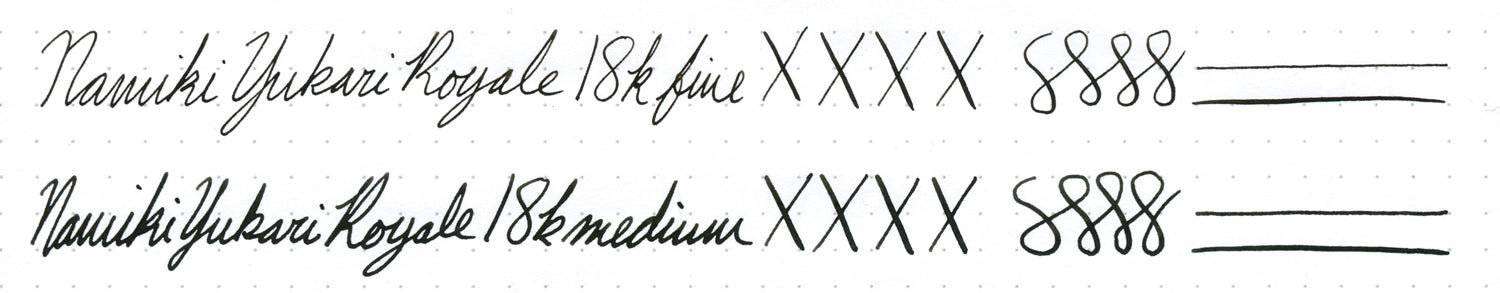 Namiki Yukari Royale 18k fine XXXX 8888
Namiki Yukari Royale 18k medium XXXX 8888